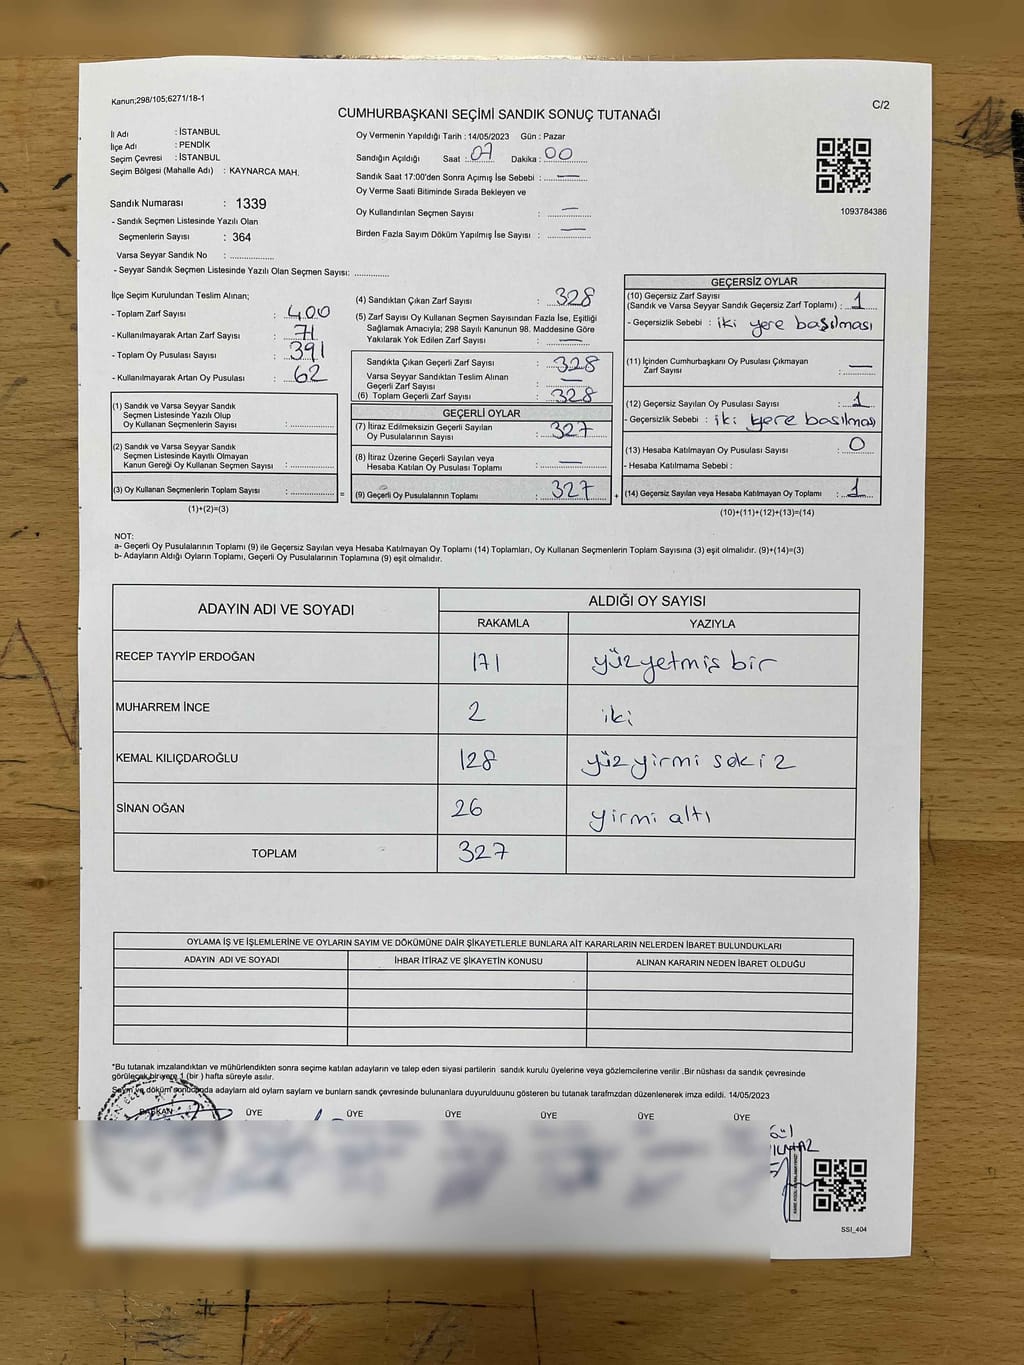 Kanun;298/105;6271/18-1
C/2
CUMHURBAŞKANI SEÇİMİ SANDIK SONUÇ TUTANAĞI
İl Adı : İSTANBUL
İlçe Adı : PENDİK
Seçim Çevresi : İSTANBUL
Seçim Bölgesi (Mahalle Adı) : KAYNARCA MAH.
Sandık Numarası : 1339
- Sandık Seçmen Listesinde Yazılı Olan
Seçmenlerin Sayısı : 364
Varsa Seyyar Sandık No : ................
- Seyyar Sandık Seçmen Listesinde Yazılı Olan Seçmen Sayısı: .............
Oy Vermenin Yapıldığı Tarih : 14/05/2023 Gün : Pazar
Sandığın Açıldığı Saat : 07 Dakika : 00
Sandık Saat 17:00'den Sonra Açımış İse Sebebi : —
Oy Verme Saati Bitiminde Sırada Bekleyen ve
Oy Kullandırılan Seçmen Sayısı : —
Birden Fazla Sayım Döküm Yapılmış İse Sayısı : —
1093784386
İlçe Seçim Kurulundan Teslim Alınan;
- Toplam Zarf Sayısı : 400
- Kullanılmayarak Artan Zarf Sayısı : 71
- Toplam Oy Pusulası Sayısı : 391
- Kullanılmayarak Artan Oy Pusulası : 62
(1) Sandık ve Varsa Seyyar Sandık
Seçmen Listesinde Yazılı Olup
Oy Kullanan Seçmenlerin Sayısı : ................
(2) Sandık ve Varsa Seyyar Sandık
Seçmen Listesinde Kayıtlı Olmayan
Kanun Gereği Oy Kullanan Seçmen Sayısı : ................
(3) Oy Kullanan Seçmenlerin Toplam Sayısı : ................
(1)+(2)=(3)
(4) Sandıktan Çıkan Zarf Sayısı : 328
(5) Zarf Sayısı Oy Kullanan Seçmen Sayısından Fazla İse, Eşitliği
Sağlamak Amacıyla; 298 Sayılı Kanunun 98. Maddesine Göre
Yakılarak Yok Edilen Zarf Sayısı : —
Sandıkta Çıkan Geçerli Zarf Sayısı : 328
Varsa Seyyar Sandıktan Teslim Alınan
Geçerli Zarf Sayısı : —
(6) Toplam Geçerli Zarf Sayısı : 328
GEÇERLİ OYLAR
(7) İtiraz Edilmeksizin Geçerli Sayılan
Oy Pusulalarının Sayısı : 327
(8) İtiraz Üzerine Geçerli Sayılan veya
Hesaba Katılan Oy Pusulası Toplamı : —
= (9) Geçerli Oy Pusulalarının Toplamı : 327 +
GEÇERSİZ OYLAR
(10) Geçersiz Zarf Sayısı
(Sandık ve Varsa Seyyar Sandık Geçersiz Zarf Toplamı) : 1
- Geçersizlik Sebebi : iki yere basılması
(11) İçinden Cumhurbaşkanı Oy Pusulası Çıkmayan
Zarf Sayısı : —
(12) Geçersiz Sayılan Oy Pusulası Sayısı : 1
- Geçersizlik Sebebi : iki yere basılması
(13) Hesaba Katılmayan Oy Pusulası Sayısı : 0
- Hesaba Katılmama Sebebi :
(14) Geçersiz Sayılan veya Hesaba Katılmayan Oy Toplamı : 1
(10)+(11)+(12)+(13)=(14)
NOT:
a- Geçerli Oy Pusulalarının Toplamı (9) ile Geçersiz Sayılan veya Hesaba Katılmayan Oy Toplamı (14) Toplamları, Oy Kullanan Seçmenlerin Toplam Sayısına (3) eşit olmalıdır. (9)+(14)=(3)
b- Adayların Aldığı Oyların Toplamı, Geçerli Oy Pusulalarının Toplamına (9) eşit olmalıdır.
ADAYIN ADI VE SOYADI ALDIĞI OY SAYISI
RAKAMLA YAZIYLA
RECEP TAYYİP ERDOĞAN 171 yüzyetmiş bir
MUHARREM İNCE 2 iki
KEMAL KILIÇDAROĞLU 128 yüzyirmi sekiz
SİNAN OĞAN 26 yirmi altı
TOPLAM 327
OYLAMA İŞ VE İŞLEMLERİNE VE OYLARIN SAYIM VE DÖKÜMÜNE DAİR ŞİKAYETLERLE BUNLARA AİT KARARLARIN NELERDEN İBARET BULUNDUKLARI
ADAYIN ADI VE SOYADI İHBAR İTİRAZ VE ŞİKAYETİN KONUSU ALINAN KARARIN NEDEN İBARET OLDUĞU
*Bu tutanak imzalandıktan ve mühürlendikten sonra seçime katılan adayların ve talep eden siyasi partilerin sandık kurulu üyelerine veya gözlemcilerine verilir .Bir nüshası da sandık çevresinde
görülecek bir yere 1 (bir ) hafta süreyle asılır.
Sayım ve döküm sonucunda adayların ald oyların sayları ve bunların sandk çevresinde bulunanlara duyurulduunu gösteren bu tutanak tarafmzdan düzenlenerek imza edildi. 14/05/2023
BAŞKAN ÜYE ÜYE ÜYE ÜYE ÜYE ÜYE
SSI_404